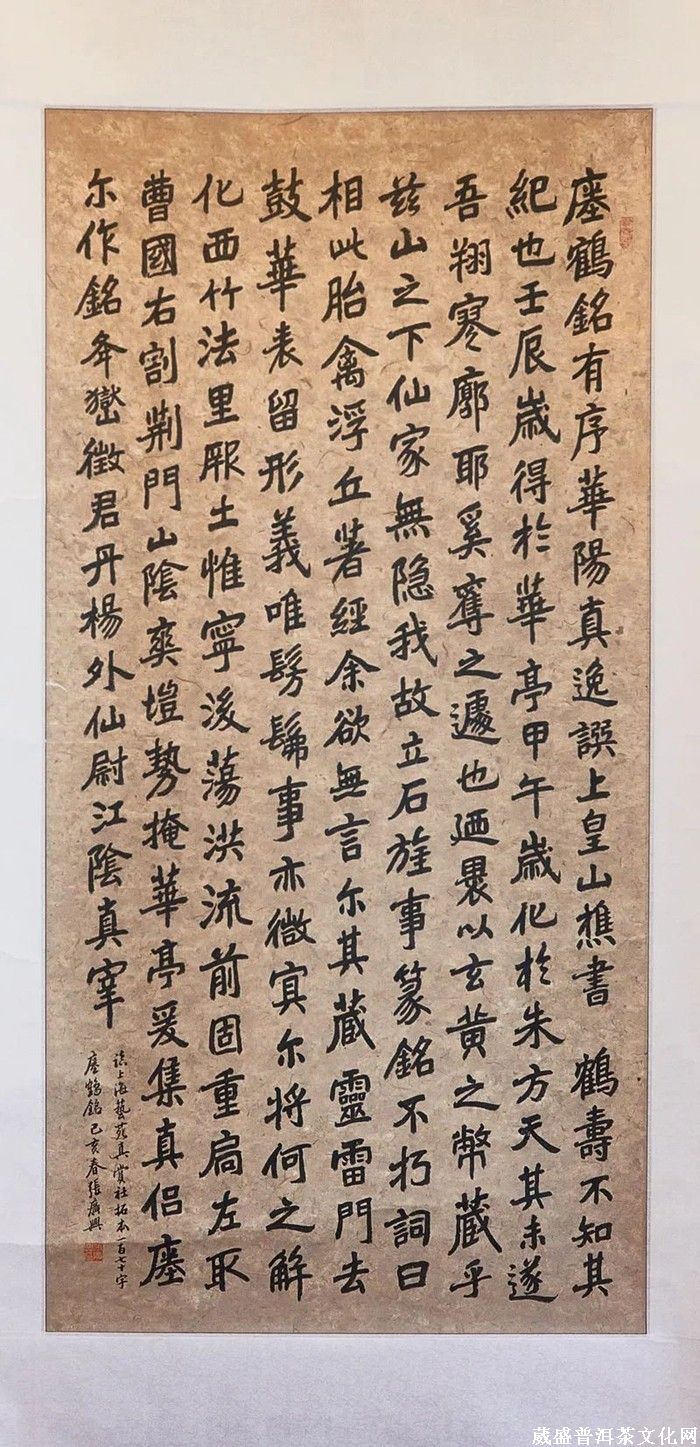 廛鶴銘有序華陽真逸譔上皇山樵書 鶴壽不知其
紀也壬辰歲得於華亭甲午歲化於朱方天其未遂
吾翔寥廓耶奚奪之遽也廼裹以玄黄之幣藏乎
兹山之下仙家無隐我故立石旌事篆銘不朽詞曰
相此胎禽浮丘著經余欲無言尔其藏靈雷門去
鼓華表留形義唯髣髴事亦微冥尔將何之解
化西竹法里厥土惟寧後蕩洪流前固重扃左取
曹國右割荆門山陰爽塏勢掩華亭爰集真侣廛
尔作銘夅嶽徵君丹楊外仙尉江陰真宰
上海藝苑真賞社拓本一百七十字
廛鶴銘己亥春張
葳盛普洱茶文化网